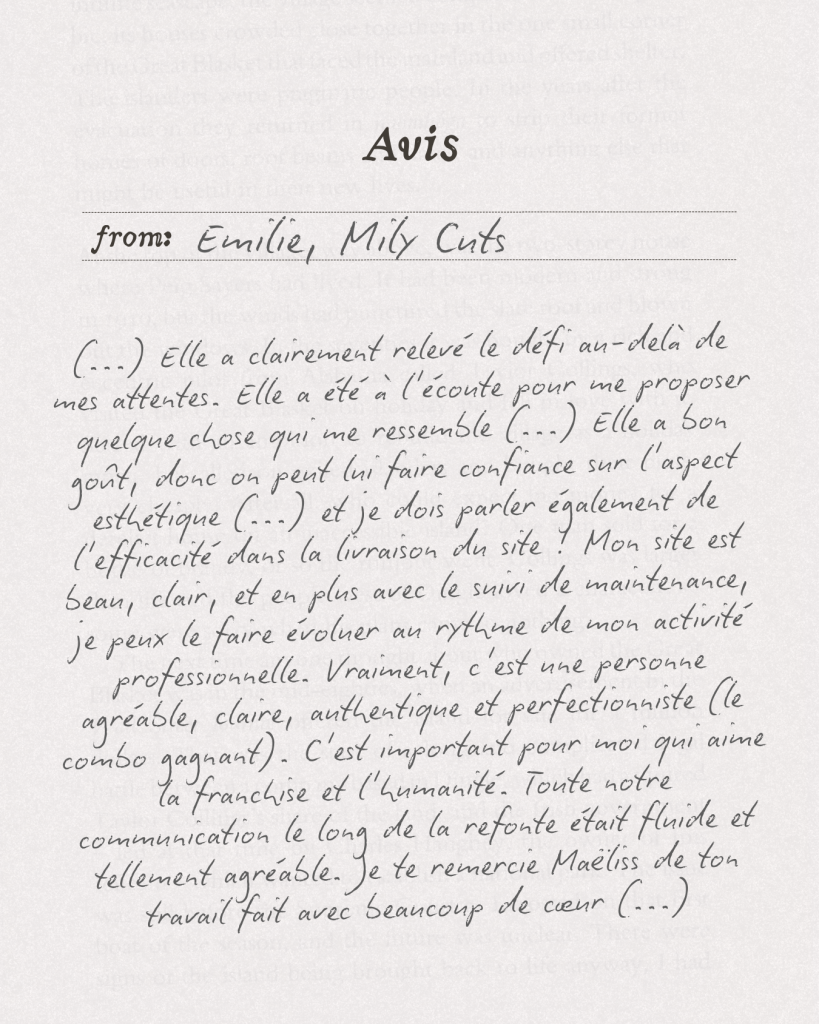 Avis
from: Emilie, Mily Cuts
(...) Elle a clairement relevé le défi au-delà de
mes attentes. Elle a été à l'écoute pour me proposer
quelque chose qui me ressemble (...) Elle a bon
goût, donc on peut lui faire confiance sur l'aspect
esthétique (...) et je dois parler également de
l'efficacité dans la livraison du site ! Mon site est
beau, clair, et en plus avec le suivi de maintenance,
je peux le faire évoluer au rythme de mon activité
professionnelle. Vraiment, c'est une personne
agréable, claire, authentique et perfectionniste (le
combo gagnant). C'est important pour moi qui aime
la franchise et l'humanité. Toute notre
communication le long de la refonte était fluide et
tellement agréable. Je te remercie Maëliss de ton
travail fait avec beaucoup de cœur (...)